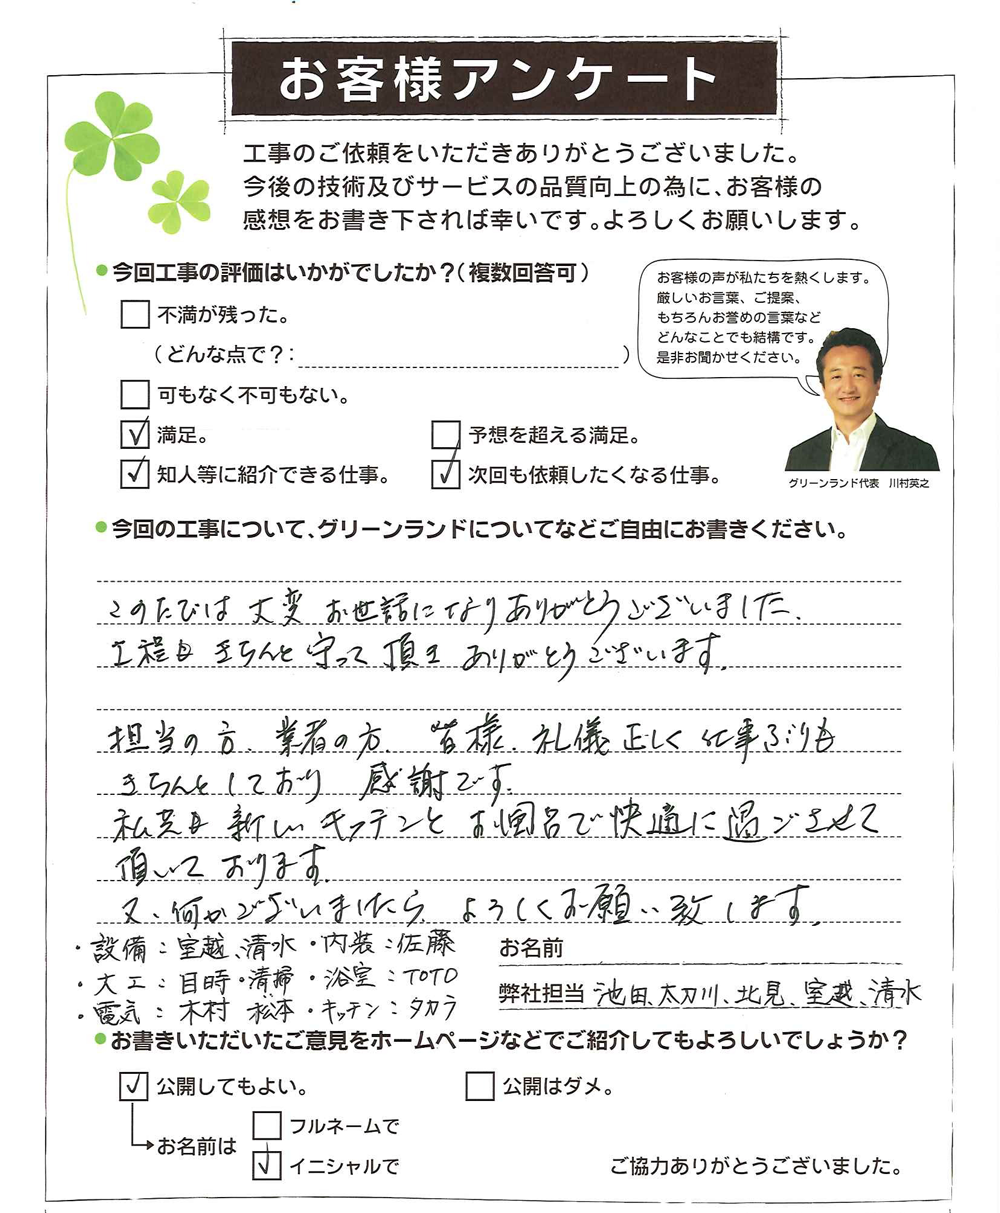 お客様アンケート
工事のご依頼をいただきありがとうございました。
今後の技術及びサービスの品質向上の為に、お客様の
感想をお書き下されば幸いです。よろしくお願いします。
今回工事の評価はいかがでしたか？（複数回答可）
お客様の声が私たちを熱くします。
厳しいお言葉、ご提案、
もちろんお誉めの言葉など
どんなことでも結構です。
是非お聞かせください。
不満が残った。
（どんな点で？：　　　）
可もなく不可もない。
満足。　予想を超える満足。
知人等に紹介できる仕事。　次回も依頼したくなる仕事。
グリーンランド代表　川村英之
今回の工事について、グリーンランドについてなどご自由にお書きください。
このたびは 大変 お世話になりありがとうございました。
工程も きちんと 守って 頂き ありがとうございます。
担当の方、業者の方、皆様、礼儀正しく 仕事ぶりも
きちんとしており 感謝です。
私共も 新しい キッチンと お風呂で快適に過ごさせて
頂いて おります。
又、何かございましたら よろしくお願い致します。
・設備：室越、清水 ・内装：佐藤
お名前
・大工：目時・清掃 ・浴室：TOTO
弊社担当 池田、太刀川、北見、室越、清水
・電気：木村 松本 ・キッチン：タカラ
お書きいただいたご意見をホームページなどでご紹介してもよろしいでしょうか？
公開してもよい。　公開はダメ。
フルネームで
お名前は
イニシャルで
ご協力ありがとうございました。